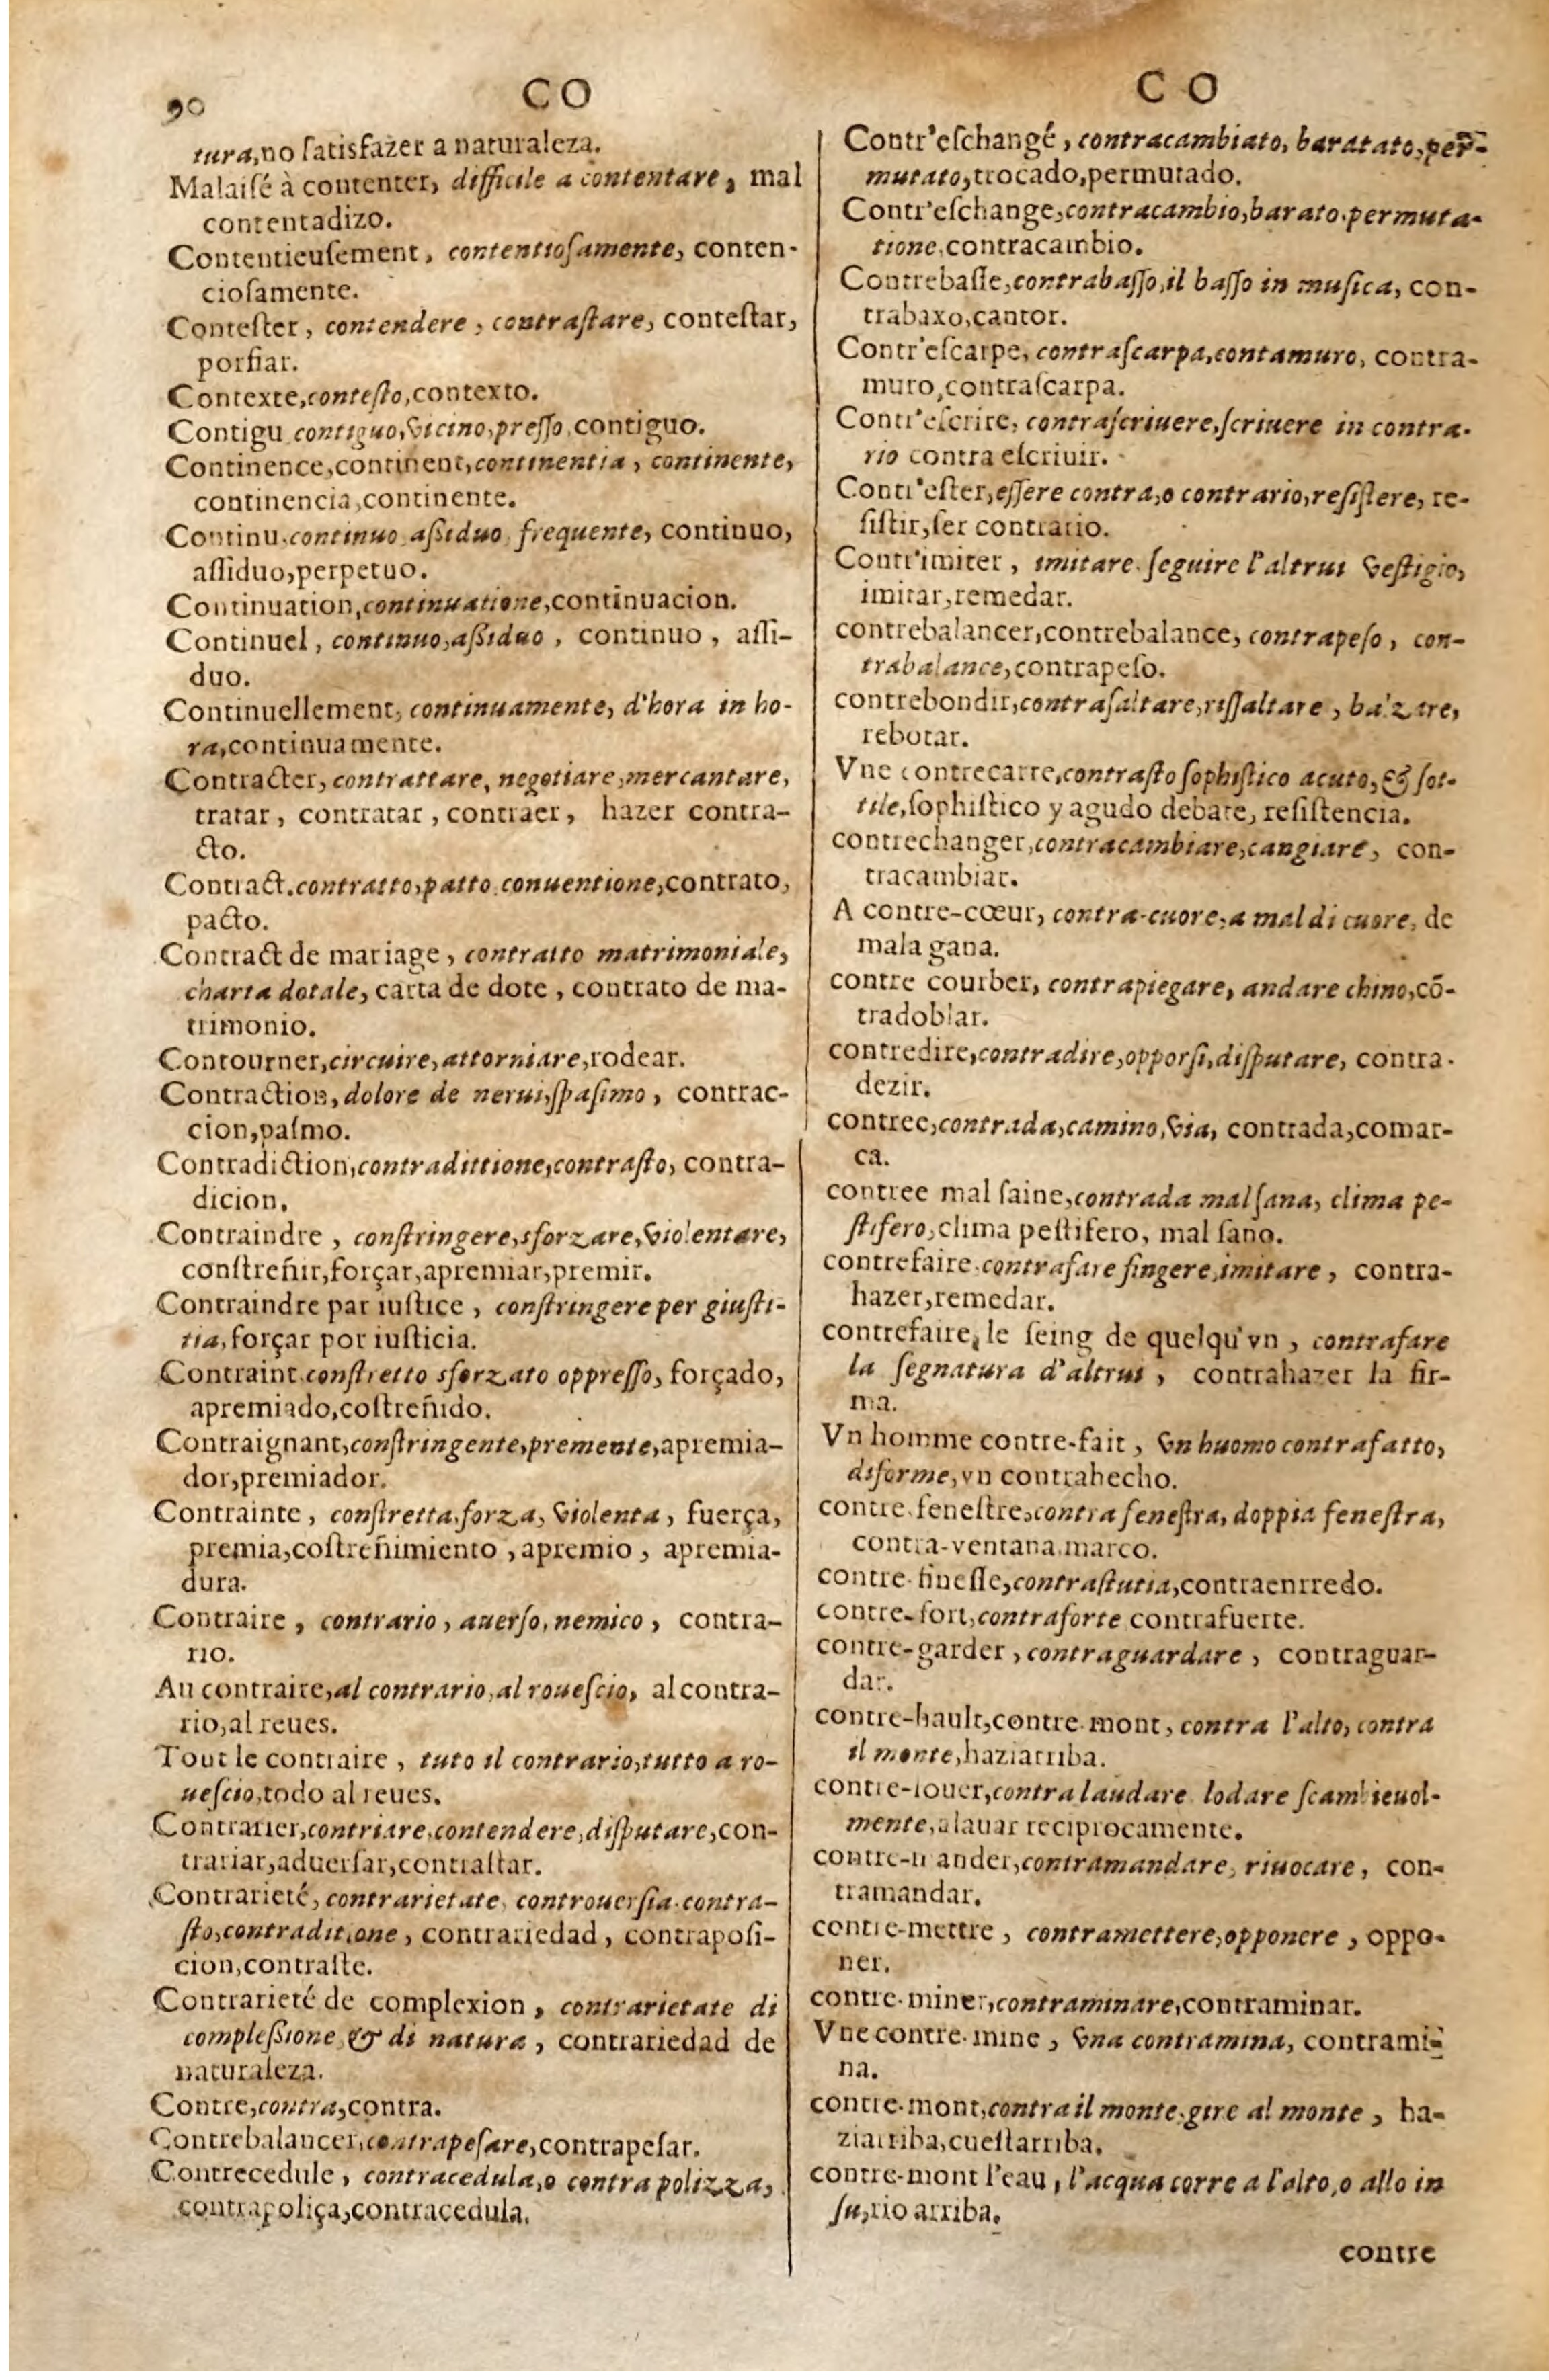 90
CO
tura,no ſatisfazer a naturaleza.
Malaiſé à contenter, difficile a contentare, mal
contentadizo.
Contentieuſement, contentioſamente, conten-
cioſamente.
Conteſter, contendere, contraſtare, conteſtar,
porfiar.
Contexte,conteſto,contexto.
Contigu contiguo,vicino,preſſo,contiguo.
Continence,continent,continentia, continente,
continencia,continente.
Continu,continuo aſsiduo frequente, continuo,
aſſiduo,perpetuo.
Continuation,continuatione,continuacion.
Continuel, continuo,aſsiduo, continuo, aſſi-
duo.
Continuellement, continuamente, d'hora in ho-
ra,continuamente.
Contracter, contrattare, negotiare,mercantare,
tratar, contratar, contraer, hazer contra-
cto.
Contract.contratto,patto conuentione,contrato,
pacto.
Contract de mariage, contratto matrimoniale,
charta dotale, carta de dote, contrato de ma-
trimonio.
Contourner,circuire,attorniare,rodear.
Contraction,dolore de nerui,ſpaſimo, contrac-
cion,paſmo.
Contradiction,contradittione,contraſto, contra-
dicion.
Contraindre, conſtringere,sforzare,violentare,
conſtreñir,forçar,apremiar,premir.
Contraindre par iuſtice, conſtringere per giuſti-
tia,forçar por iuſticia.
Contraint.conſtretto sforzato oppreſſo, forçado,
apremiado,coſtreñido.
Contraignant,conſtringente,premente,apremia-
dor,premiador.
Contrainte, conſtretta,forza, violenta, fuerça,
premia,coſtreñimiento, apremio, apremia-
dura.
Contraire, contrario, auerſo,nemico, contra-
rio.
Au contraire,al contrario,al roueſcio, al contra-
rio,al reues.
Tout le contraire, tuto il contrario,tutto a ro-
ueſcio,todo al reues.
Contrarier,contriare,contendere,diſputare,con-
trariar,aduerſar,contraſtar.
Contrarieté, contrarietate, controuerſia.contra-
ſto,contraditione, contrariedad, contrapoſi-
cion,contraſte.
Contrarieté de complexion, contrarietate di
compleſsione & di natura, contrariedad de
naturaleza.
Contre,contra,contra.
Contrebalancer,contrapeſare,contrapeſar.
Contrecedule, contracedula,o contra polizza,
contrapoliça,contracedula.
CO
Contr'eſchangé, contracambiato, baratato,per-
mutato,trocado,permutado.
Contr'eſchange,contracambio,barato.permuta-
tione,contracambio.
Contrebaſſe,contrabaſſo,il baſſo in muſica, con-
trabaxo,cantor.
Contr'eſcarpe, contraſcarpa,contamuro, contra-
muro,contraſcarpa.
Contr'eſcrire, contraſcriuere,ſcriuere in contra-
rio contra eſcriuir.
Contr'eſter,eſſere contra,o contrario,reſiſtere, re-
ſiſtir,ſer contrario.
Contr'imiter, imitare.ſeguire l'altrui veſtigio,
imitar,remedar.
contrebalancer,contrebalance, contrapeſo, con-
trabalance,contrapeſo.
contrebondir,contraſaltare,riſſaltare, balzare,
rebotar.
Vne contrecarre,contraſto ſophiſtico acuto, & ſot-
tile,ſophiſtico y agudo debate, reſiſtencia.
contrechanger,contracambiare,cangiare, con-
tracambiar.
A contre-cœur, contra-cuore,a mal di cuore, de
mala gana.
contre courber, contrapiegare, andare chino,cõ-
tradoblar.
contredire,contradire,opporſi,diſputare, contra-
dezir.
contree,contrada,camino,via, contrada,comar-
ca.
contree mal ſaine,contrada malſana, clima pe-
ſtifero,clima peſtifero, mal ſano.
contrefaire.contrafare fingere,imitare, contra-
hazer,remedar.
contrefaire, le ſeing de quelqu'vn, contrafare
la ſegnatura d'altrui, contrahazer la fir-
ma.
Vn homme contre-fait, vn huomo contrafatto,
diforme,vn contrahecho.
contre.feneſtre,contra feneſtra, doppia feneſtra,
contra-ventana.marco.
contre-fineſſe,contraſtutia,contraenrredo.
contre-fort,contraforte contrafuerte.
contre-garder, contraguardare, contraguar-
dar.
contre-hault,contre-mont, contra l'alto, contra
il monte,haziarriba.
contre-louer,contra laudare lodare ſcambieuol-
mente,alauar reciprocamente.
contre-mander,contramandare, riuocare, con-
tramandar.
contre-mettre, contramettere,opponere, oppo-
ner.
contre-miner,contraminare,contraminar.
Vne contre-mine, vna contramina, contrami-
na.
contre-mont,contra il monte,gire al monte, ha-
ziarriba,cueſtarriba.
contre-mont l'eau, l'acqua corre a l'alto,o allo in
ſu,rio arriba.
contre